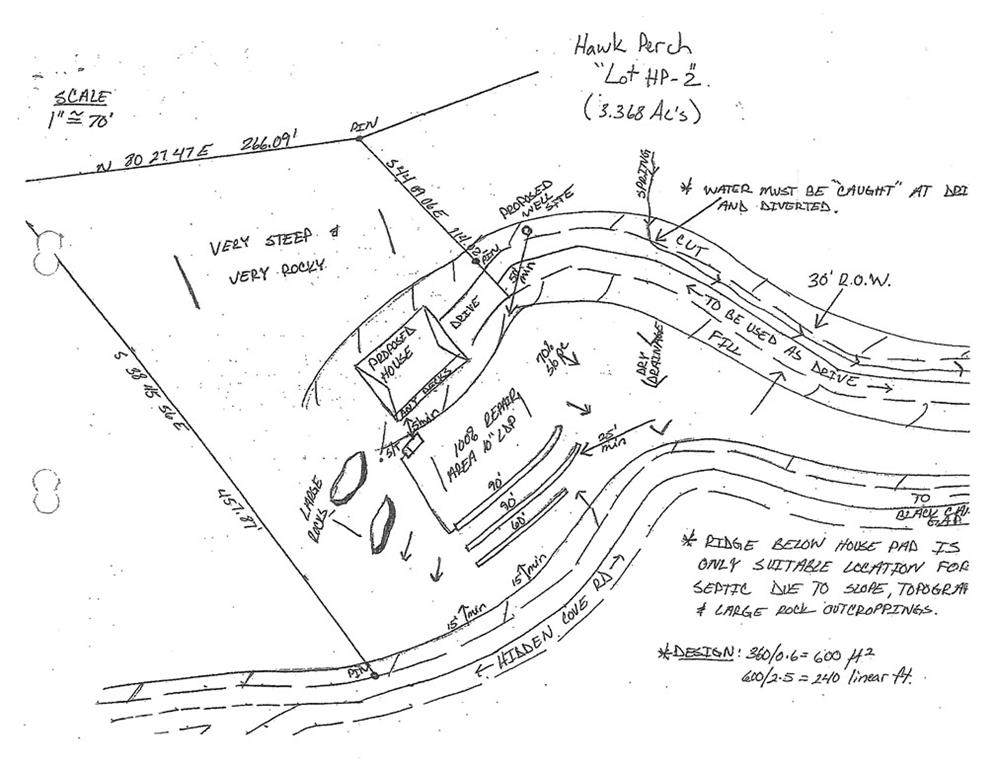 Hawk Perch
"Lot HP-2".
(3.368 Ac's)
SCALE
1" ≅ 70'
PIN
N 80 27 47 E 266.09'
S 44 09 06 E
PIN
PROPOSED
WELL
SITE
SPRING
* WATER MUST BE "CAUGHT" AT DRI
AND DIVERTED.
CUT
30' R.O.W.
VERY STEEP &
VERY ROCKY
50'
min
DRIVE
TO BE USED AS DRIVE
FILL
PROPOSED
HOUSE
ANY DECKS
5'min
5'
70%
DRY
DRAINAGE
100% REPAIR
AREA 10" LDP
25'
min
90'
90'
60'
S 38 45 56 E
457.87'
LARGE
ROCKS
15' min
15' min
HIDDEN COVE RD
TO
BLACK
GAP
* RIDGE BELOW HOUSE PAD IS
ONLY SUITABLE LOCATION FOR
SEPTIC DUE TO SLOPE, TOPOGRA
& LARGE ROCK OUTCROPPINGS.
* DESIGN: 360/0.6 = 600 ft²
600/2.5 = 240 linear ft.
PIN